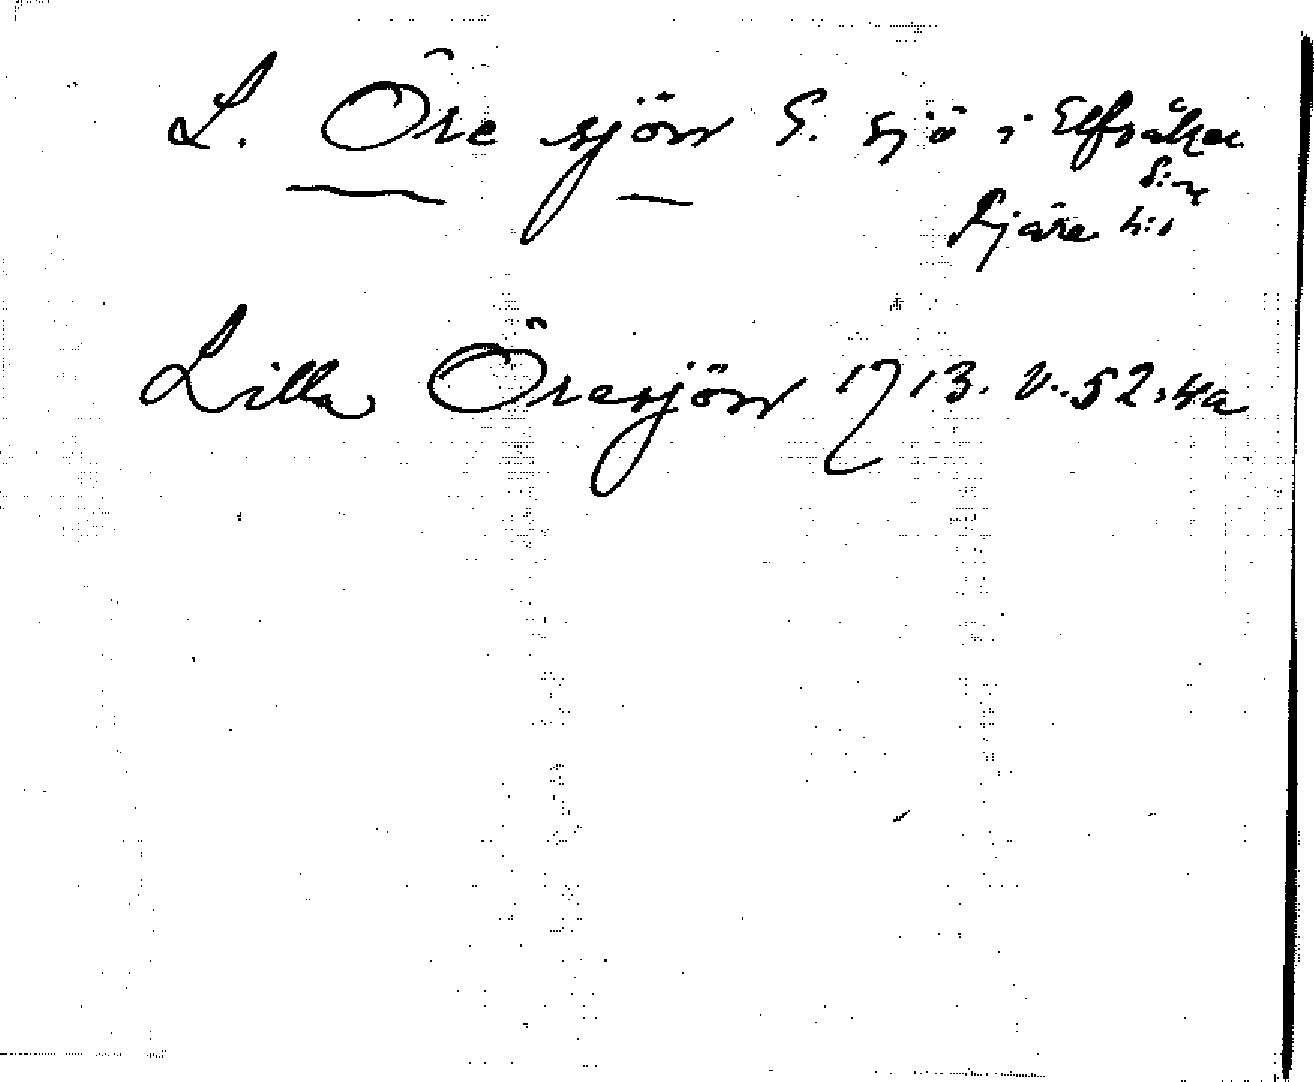 L. Öre sjön S. sjö i Elfsåker
S:n
Fjäre h:d
Lilla Öresjön 1713. V. 52:4a